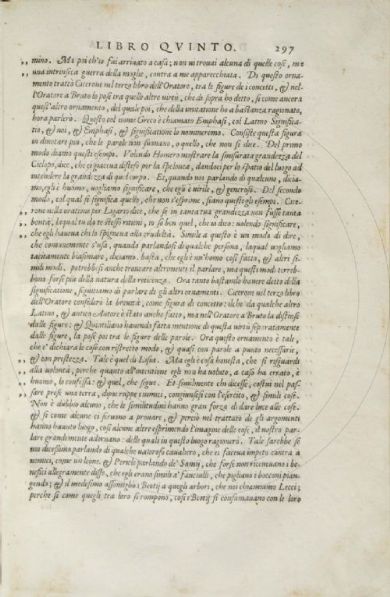 LIBRO QVINTO. 297
mino. Ma poi ch'io fui arriuato a casa; non ui trouai alcuna di quelle cose, ma
una intrinseca guerra della moglie, contra a me apparecchiata. Di questo orna-
mento trattò Cicerone nel terzo libro dell'Oratore, tra le figure de i concetti, & nel-
l'Oratore a Bruto lo pose tra quelle altre uirtù, che di sopra ho detto, si come ancora
quest'altro ornamento, del quale poi, che della imitatione ho a bastanza ragionato,
hora parlerò. Questo col nome Greco è chiamato Emphasi, col Latino Significa-
tio, & noi, & Emphasi, & significatione lo nomaremo. Consiste questa figura
in dimostrar più, che le parole non suonano, o quello, che non si dice. Del primo
modo diamo questi esempi. Volendo Homero mostrare la smisurata grandezza del
Ciclopo, dice, ch'ei giaceua disteso per la spelunca, dandoci per lo spatio del luogo ad
intendere la grandezza di quel corpo. Et, quando noi parlando di qualcuno, dicia-
mo, egli è huomo, uogliamo significare, che egli è uirile, & generoso. Del secondo
modo, col qual si significa quello, che non s'esprime, siano questi gli esempi. Cice-
rone nella oratione per Ligario dice, che se in tanta tua grandezza non fusse tanta
bontà, laqual tu da te stesso ritieni, io so ben quel, che io dico: uolendo significare,
che egli haueua chi lo spigneua alla crudeltà. Simile a questo è un modo di dire,
che communemente s'usa, quando parlandosi di qualche persona, laqual uogliamo
tacitamente biasimare, diciamo. basta, che egli è un'homo cosi fatto, & altri si-
mili modi. potrebbesi anche troncare altrimenti il parlare, ma questi modi terreb-
bono forse più della natura della reticenza. Ora tanto bastando hauere detto della
significatione, seguitiamo di parlare de gli altri ornamenti. Cicerone nel terzo libro
dell'Oratore considerò la breuità, come figura di concetto: ilche da qualche altro
Latino, & antico Autore è stato anche fatto, ma nell'Oratore a Bruto la distinse
dalle figure: & Quintiliano hauendo fatta mentione di questa uirtù separatamente
dalle figure, la pose poi tra le figure delle parole. Ora questo ornamento è tale,
che e' dichiara le cose con ristretto modo, & quasi con parole a punto necessarie,
& con prestezza. Tale è quel di Lasia. Ma egli è cosa honesta, che si risguardi
alla uolontà, perche quanto all'intentione egli mai ha uoluto, a caso ha errato, è
huomo, lo confessa: & quel, che segue. Et similmente chi dicesse, costui nel pas-
sare prese una terra, dipoi roppe i nimici, congiunsesi con l'esercito, & simili cose.
Non è dubbio alcuno, che le similitudini hanno gran forza di dare luce alle cose.
& si come alcune ci seruono a prouare, & perciò nel trattato de gli argomenti
hanno hauuto luogo, cosi alcune altre esprimendo l'imagine delle cose, il nostro par-
lare grandemente adornano: delle quali in questo luogo ragionerò. Tale sarebbe se
noi dicessimo parlando di qualche ualoroso caualiero, che ei faceua impeto contra a
nemici, come un leone. & Pericle parlando de' Samij, che forse non riceuuano i be-
neficij allegramente disse, che egli erano simili a' fanciulli, che pigliano i bocconi pian-
gendo; & il medesimo assimigliò i Beotij a quegli arbori, che noi chiamiamo Lecci;
perche si come quegli tra loro si rompono, cosi i Beotij si consumauano con le loro